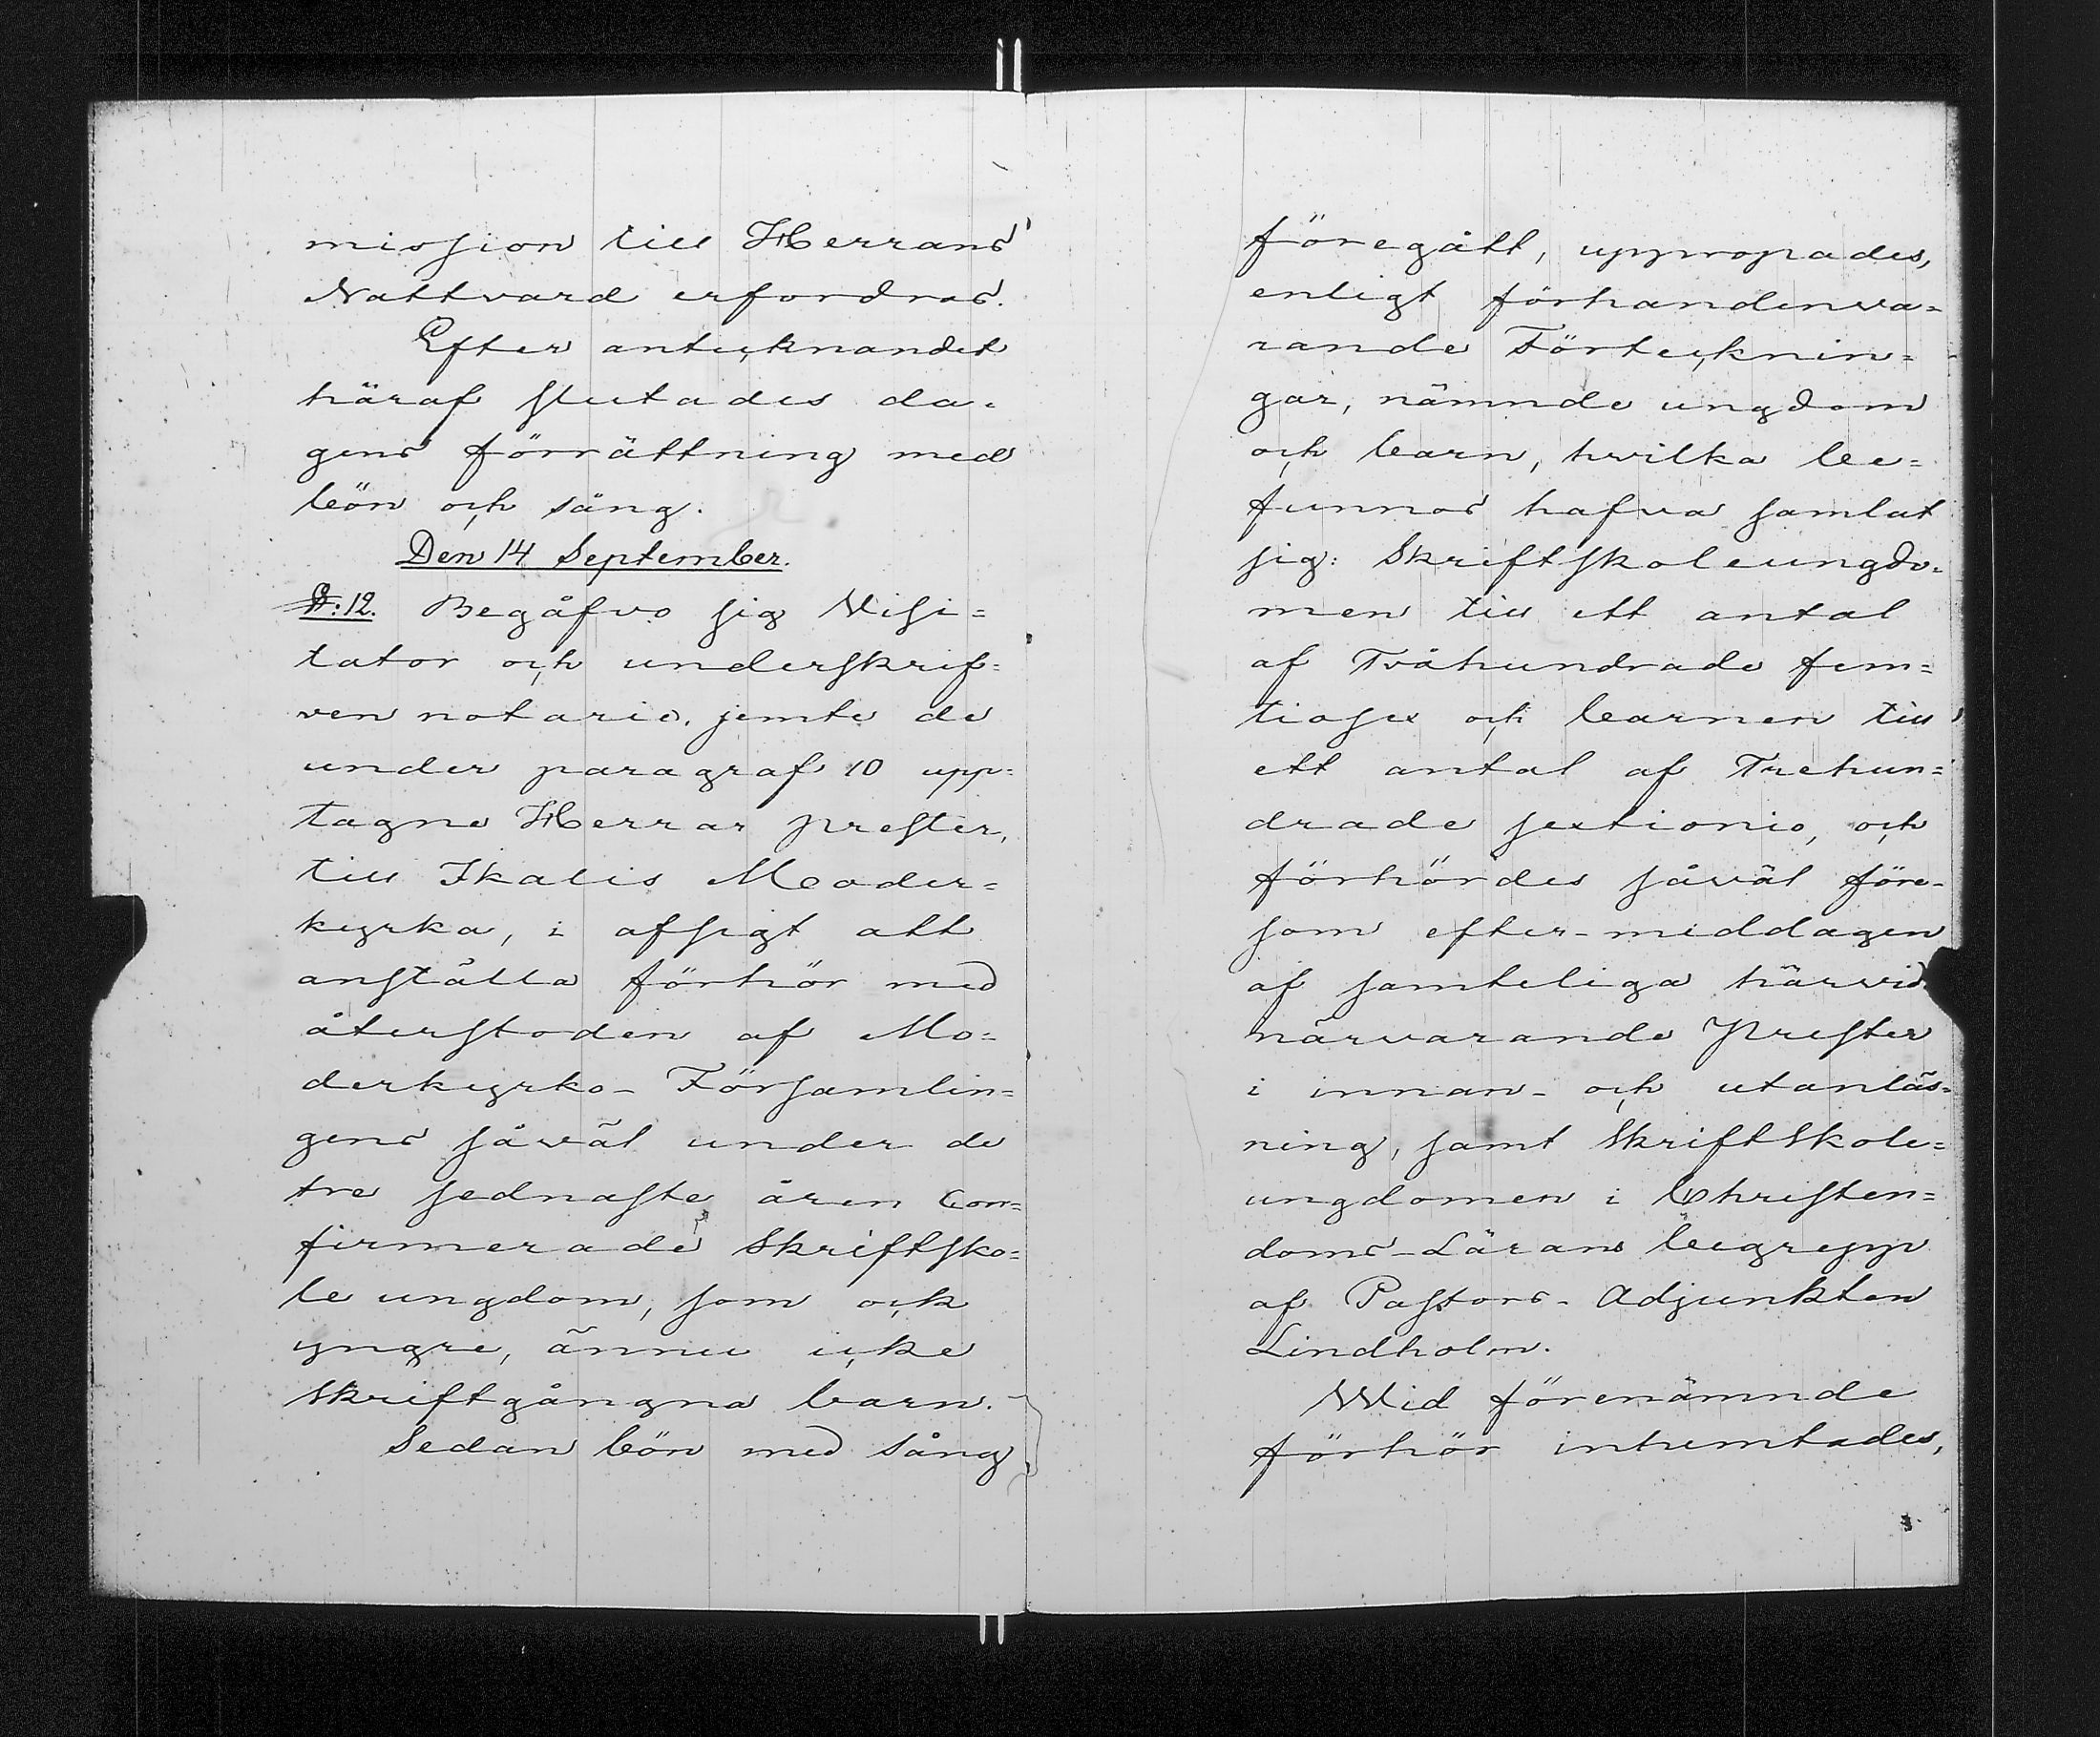 mission till Herrans
Nattvard erfordras.
Efter antecknandet
häraf slutades da=
gens förrättning med
bön och sång.
Den 14 September.
§: 12. Begåfvo sig Visi=
tator och underskrif=
ven notarie, jemte de
under paragraf 10 upp=
tagne Herrar prester,
till Ikalis Moder=
kyrka, i afsigt att
anställa förhör med
återstoden af Mo=
derkyrko-Församlin=
gens såväl under de
tre sednaste åren Con=
firmerade Skriftsko=
le ungdom, som ock
yngre, ännu icke
skriftgångna barn.
Sedan bön med sång
föregått, uppropades,
enligt förhandenva=
rande Förtecknin=
gar, nämnde ungdom
och barn, hvilka be=
funnos hafva samlat
sig: Skriftskoleungdo=
men till ett antal
af Tvåhundrade fem=
tiosex och barnen till
ett antal af Trehun=
drade sextionio, och
förhördes såväl före-
som efter-middagen
af samteliga härvid
närvarande Prester
i innan- och utanläs=
ning, samt Skriftskole=
ungdomen i Christen=
doms-Lärans begrepp
af Pastors-Adjunkten
Lindholm.
Wid förenämnde
förhör inhemtades,